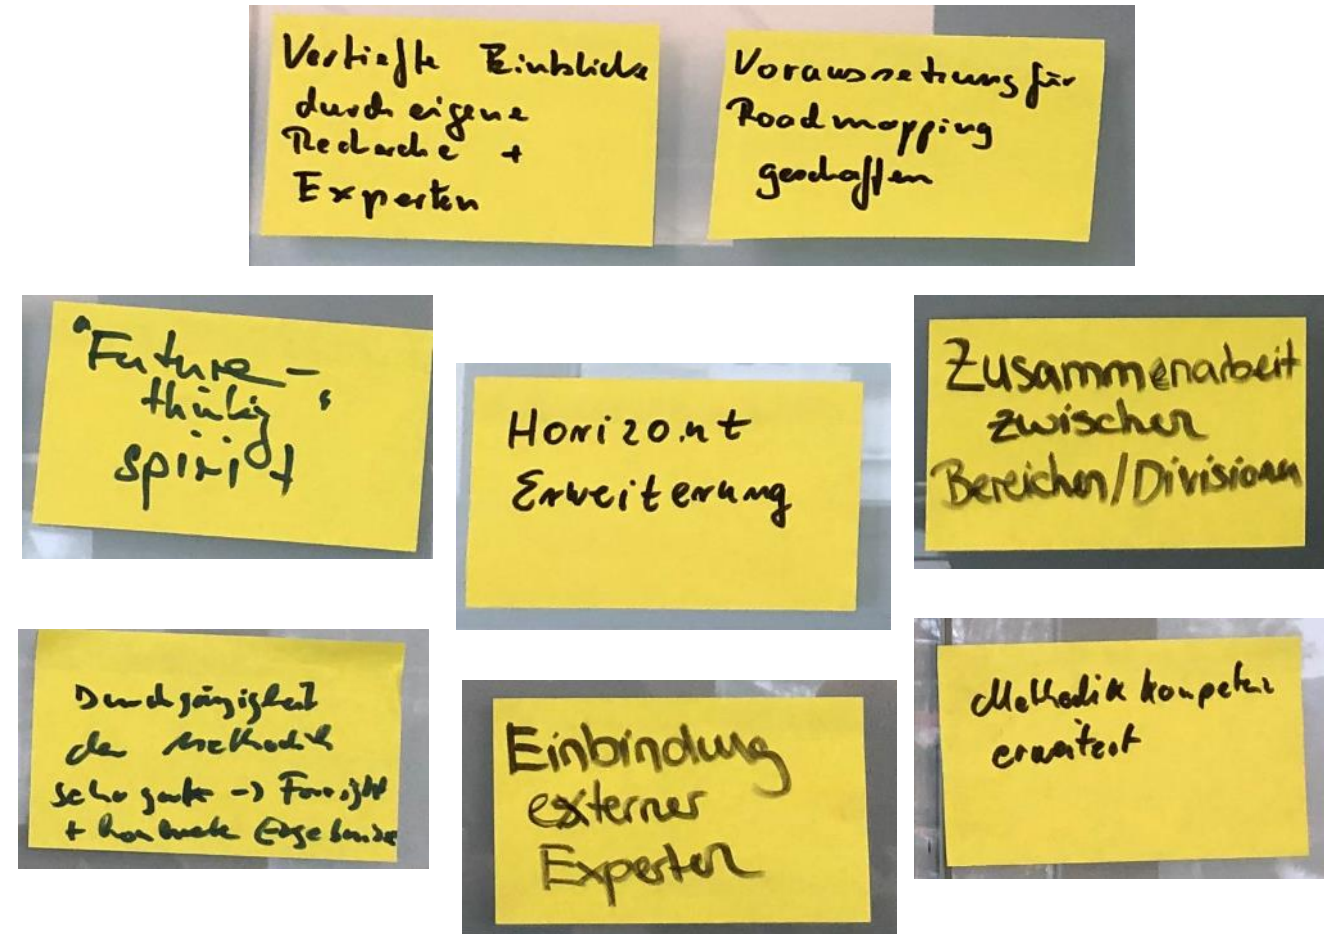 Vertiefte Einblicke
durch eigene
Recherche +
Experten
Voraussetzung für
Roadmapping
geschaffen
"Future-
thinking"
spirit
Horizont
Erweiterung
Zusammenarbeit
zwischen
Bereichen/Divisionen
Durchgängigkeit
der Methodik
sehr gute -> Foresight
+ konkrete Ergebnisse
Einbindung
externer
Experten
Methodik kompetenz
erweitert